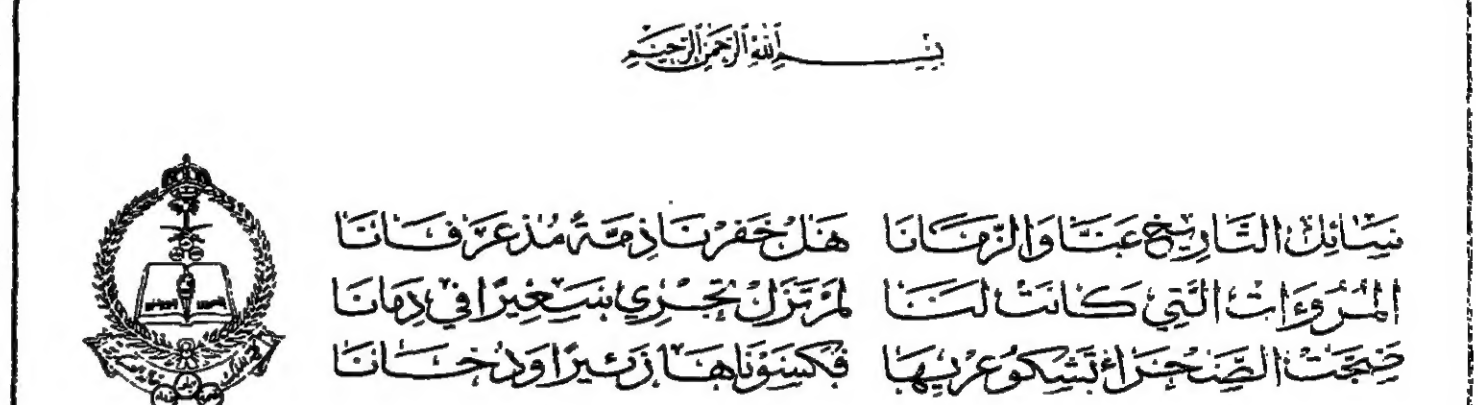 بسم الله الرحمن الرحيم
سَائِلِ التَّارِيخَ عَنَّا وَالزَّمَانَا هَلْ خَفَرْنَا ذِمَّةً مُذْ عَرَفَانَا
المُرُوءَاتُ الَّتِي كَانَتْ لَنَا لَمْ تَزَلْ تَجْرِي سَعِيرًا فِي دِمَانَا
ضَجَّتِ الصَّحْرَاءُ تَشْكُو عُرْيَهَا فَكَسَوْنَاهَا زَئِيرًا وَدُخَانَا